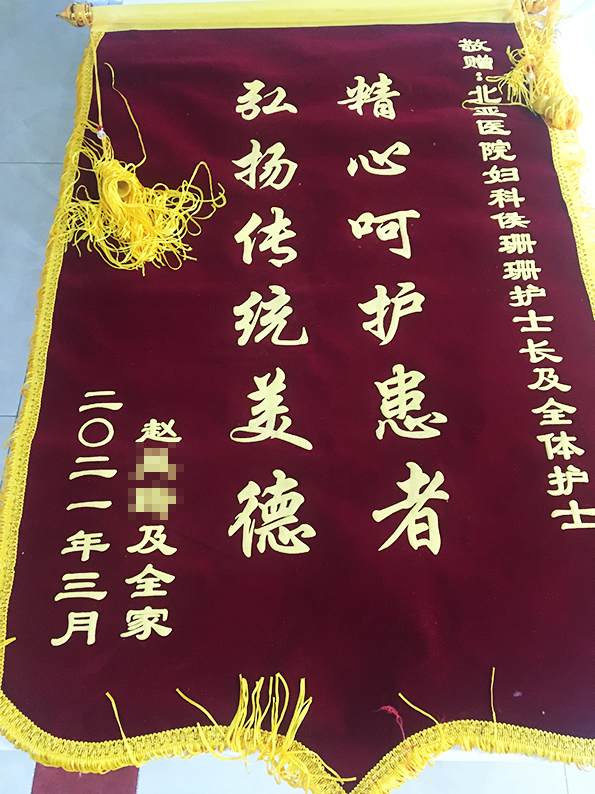 敬赠:北亚医院妇科侯珊珊护士长及全体护士
精心呵护患者
弘扬传统美德
赵及全家
二〇二一年三月